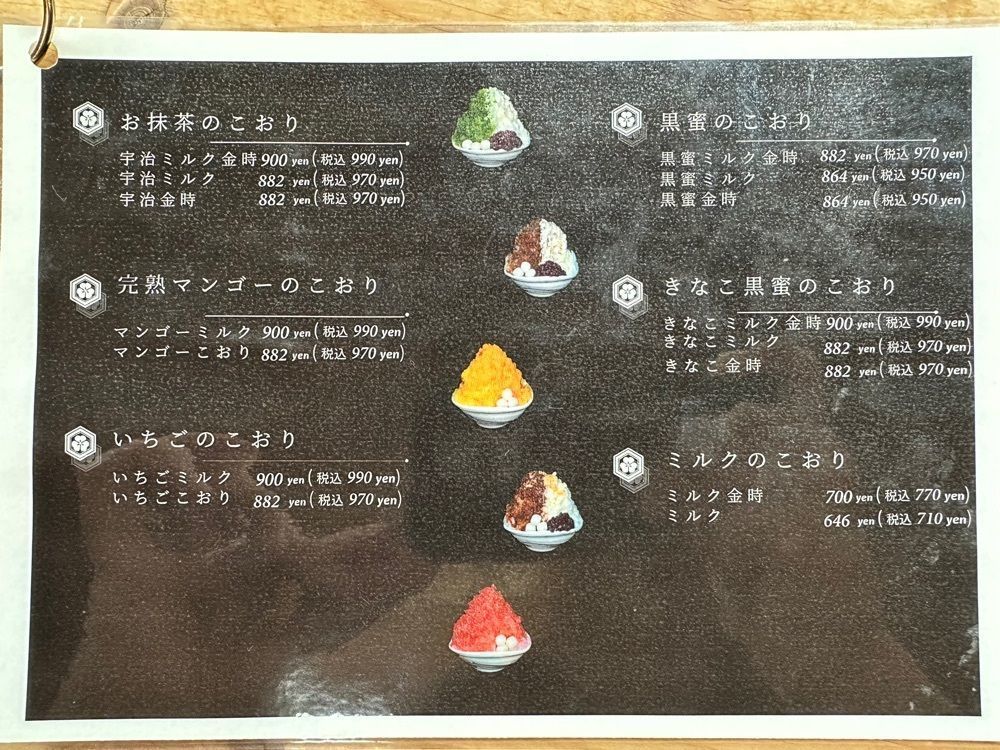 お抹茶のこおり
宇治ミルク金時 900 yen (税込 990 yen)
宇治ミルク 882 yen (税込 970 yen)
宇治金時 882 yen (税込 970 yen)
完熟マンゴーのこおり
マンゴーミルク 900 yen (税込 990 yen)
マンゴーこおり 882 yen (税込 970 yen)
いちごのこおり
いちごミルク 900 yen (税込 990 yen)
いちごこおり 882 yen (税込 970 yen)
黒蜜のこおり
黒蜜ミルク金時 882 yen (税込 970 yen)
黒蜜ミルク 864 yen (税込 950 yen)
黒蜜金時 864 yen (税込 950 yen)
きなこ黒蜜のこおり
きなこミルク金時 900 yen (税込 990 yen)
きなこミルク 882 yen (税込 970 yen)
きなこ金時 882 yen (税込 970 yen)
ミルクのこおり
ミルク金時 700 yen (税込 770 yen)
ミルク 646 yen (税込 710 yen)